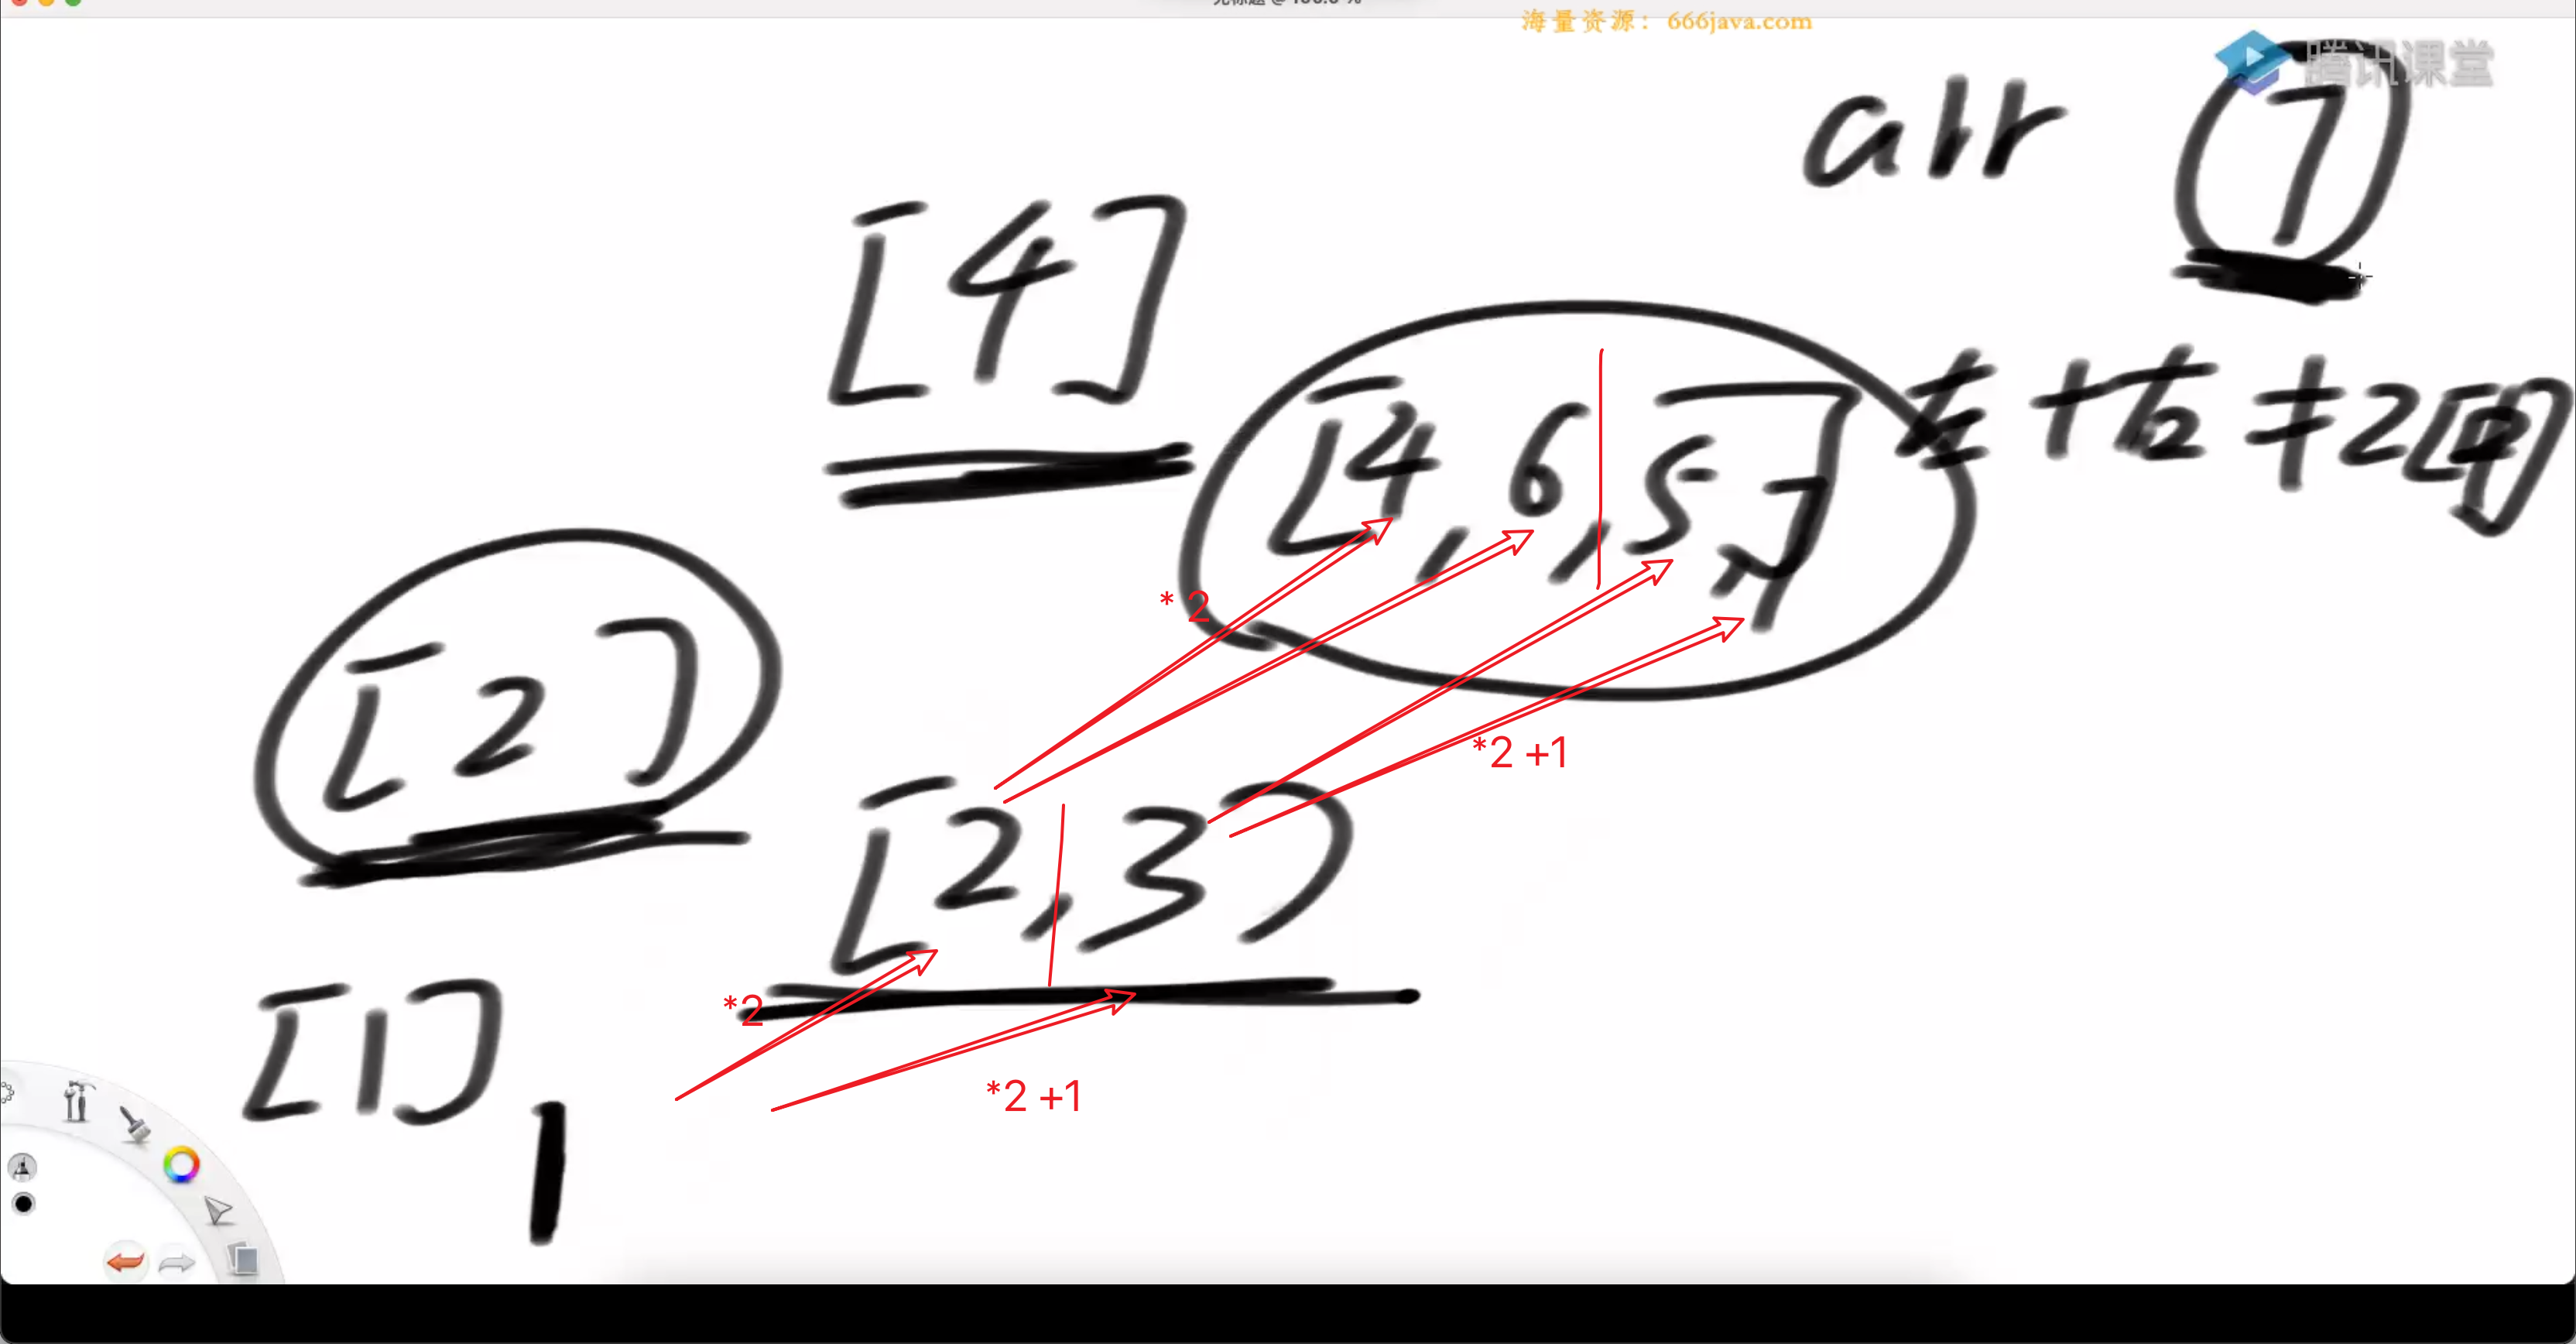 海量资源：666java.com
腾讯课堂
arr 7
[4]
[4, 6, 5, 7]
左+右≠2中
* 2
[2]
*2 +1
[2, 3]
[1],
*2
*2 +1
1